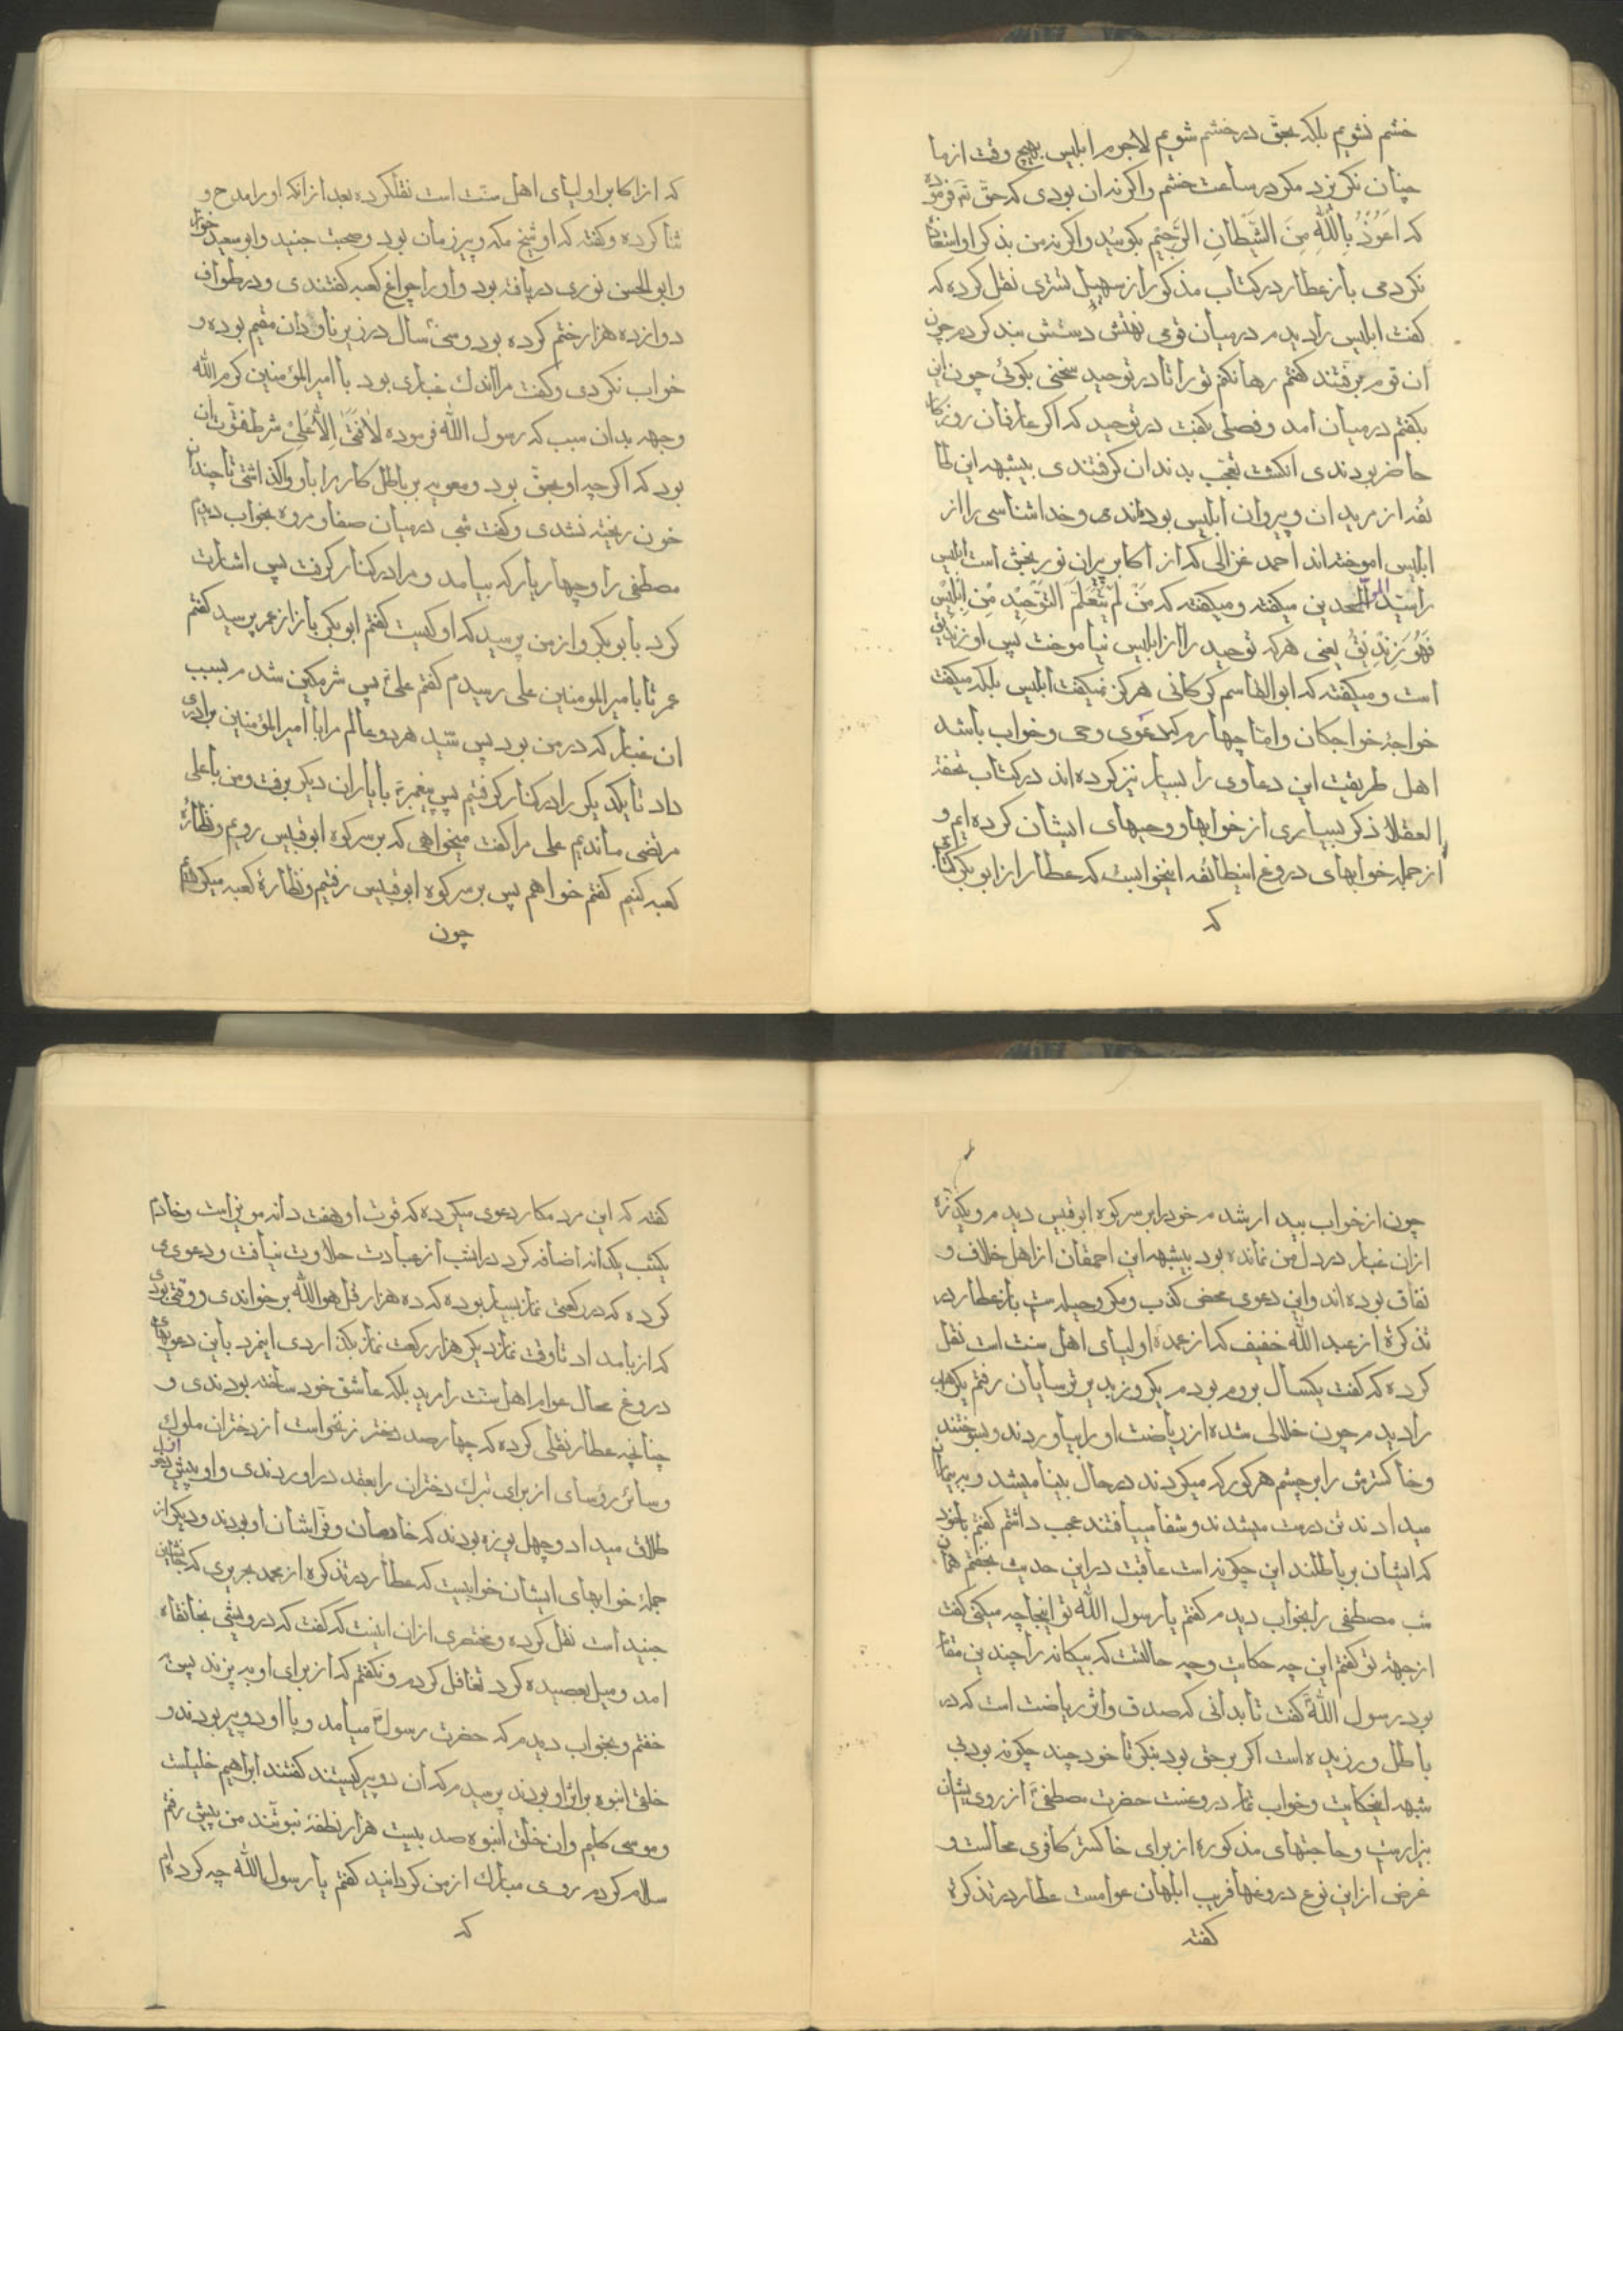 خشم نشویم بلکه بحق در خشم شویم لاجرم ابلیس بهیچ وقت از ما
چنان نکریزد مکر در ساعت خشم واکرنه ان بودی که حق تع فرموده
که اَعُوذُ بِاللهِ مِنَ الشَّیْطانِ الرَّجیْمِ بکوئید واکرنه من بذکر او استعاذه
نکردمی باز عطار در کتاب مذکور از سهیل تستری نقل کرده که
کفت ابلیس را دیدم در میان قومی بهمتش بند کردم چون
ان قوم برفتند کفتم رها نکنم تو را تا در توحید سخنی بکوئی چون این
بکفتم در میان امد و فصلی بکفت در توحید که اکر عارفان روزکار
حاضر بودندی انکشت تعجب بدندان کرفتندی بیشبهه این طا
ئفه از مریدان و پیروان ابلیس بوده‌اندی و خداشناسی را از
ابلیس اموخته‌اند احمد غزالی که از اکابر پیران نور بخش است ابلیس
را سید الموحدین میکفته و میکفته که مَنْ لَمْ یَتَعَلَّمِ التَّوْحِیْدَ مِنْ اِبْلِیْسَ
فَهُوَ زِنْدِیْقٌ یعنی هرکه توحید را از ابلیس نیاموخت پس او زندیق
است و میکفته که ابوالقاسم کرکانی هرکز نمیکفت ابلیس بلکه میکفت
خواجهٔ خواجکان و امّا چهارم که دعوی وحی و خواب باشد
اهل طریقت این دعاوی را بسیار نیز کرده‌اند در کتاب تحفة
العقلا ذکر بسیاری از خوابها و وحیهای ایشان کرده‌ایم و
از جمله خوابهای دروغ اینطائفه اینخوابیست که عطار از ابو بکر کتانی
که
که از اکابر اولیای اهل سنّت است نقلکرده بعد از انکه او را مدح و
ثنا کرده و کفته که او شیخ مکه و پیر زمان بود و صحبت جنید و ابو سعید خراز
و ابو الحسن نوری دریافته بود و او را چراغ کعبه کفتندی و در طواف
دوازده هزار ختم کرده بود و سی سال در زیر ناودان مقیم بوده و
خواب نکردی و کفت مرا اندک غباری بود با امیر المؤمنین کرم الله
وجهه بدان سبب که رسول الله فرموده لا فتی الا علی شرط فتوّت ان
بود که اکرچه او بحق بود و معویه بر باطل کار را باو واکذاشتی تا چندان
خون ریخته نشدی و کفت شبی در میان صفا و مروه بخواب دیدم
مصطفی را و چهار یار که بیامد و مرا در کنار کرفت پس اشارت
کرد بابو بکر و از من پرسید که او کیست کفتم ابو بکر باز از عمر پرسید کفتم
عمر تا بامیر المومنین علی رسیدم کفتم علی پس شرمکین شدم بسبب
ان غبار که در من بود پس سید هر دو عالم مرا با امیر المؤمنین برادری
داد تا یکدیکر را در کنار کرفتیم پس پیغمبر با یاران دیکر برفت و من با علی
مرتضی ماندیم علی مرا کفت میخواهی که بر سر کوه ابو قبیس رویم و نظارهٔ
کعبه کنیم کفتم خواهم پس بر سر کوه ابو قبیس رفتیم و نظارهٔ کعبه میکردیم
چون
چون از خواب بیدار شدم خود را بر سر کوه ابو قبیس دیدم و یکذره
از ان غبار در دل من نمانده بود بیشبهه این احمقان از اهل خلاف و
نفاق بوده‌اند و این دعوی محض کذب و مکر و حیله ست باز عطار در
تذکره از عبد الله خفیف که از عمدهٔ اولیای اهل سنت است نقل
کرده که کفت یکسال بروم بودم یکروز بدیر ترسایان رفتم یک راهب
را دیدم چون خلالی شده از ریاضت او را بیاوردند و بسوختند
و خاکسترش را بر چشم هر کور که میکردند در حال بینا میشد و به بیماران
میدادند تن درست میشدند و شفا مییافتند عجب داشتم کفتم با خود
که ایشان بر باطلند این چکونه است عاقبت در این حدیث بخفتم همان
شب مصطفی را بخواب دیدم کفتم یا رسول الله تو اینجا چه میکنی کفت
از جهة تو کفتم این چه حکایت و چه حالتست که بیکانه را چندین مقام
بود رسول الله کفت تا بدانی که صدق و اثر ریاضت است که در
باطل ورزیده است اکر بر حق بود بنکر تا خود چند چکونه بودی
شبهه اینحکایت و خواب تمام دروغست حضرت مصطفی از روی ایشان
بیزار ست و حاجتهای مذکوره از برای خاکستر کافری محالست و
غرض از این نوع دروغها فریب ابلهان عوامست عطار در تذکره
کفته
کفته که این مرد مکار دعوی میکرده که قوت او هفت دانه مویز است و خادم
یکشب یکدانه اضافه کرد در انشب از عبادت حلاوت نیافت و دعوی
کرده که در رکعتی نماز بسیار بوده که ده هزار قل هو الله بر خواندی و وقتی بودی
که از بامداد تا وقت نماز دیکر هزار رکعت نماز بکذاردی اینمرد باین دعویهای
دروغ محال عوام اهل سنّت را مرید بلکه عاشق خود ساخته بودندی و
چنانچه عطار نقلی کرده که چهار صد دختر زنخواست از دختران ملوک
و سائر رؤسای از برای تبرک دختران را بعقد در اوردندی و او پیش از دخول
طلاق میداد و چهل بوزه بودند که خادمان و فراشان او بودند و دیکر از
جملهٔ خوابهای ایشان خوابیست که عطار در تذکره از محمد جریری که جانشین
جنید است نقل کرده و مختصری از ان اینست که کفت که درویشی بخانقاه
امد و میل بعصیده کرد تغافل کردم و نکفتم که از برای او به پزند پس
خفتم و بخواب دیدم که حضرت رسول میامد و با او دو پیر بودند و
خلقی انبوه بر اثر او بودند پرسیدم که ان دو پیر کیستند کفتند ابراهیم خلیلست
و موسی کلیم و ان خلق انبوه صد بیست هزار نقطهٔ نبوتند من پیش رفتم
سلام کردم روی مبارک از من کردانید کفتم یا رسول الله چه کرده‌ام
که